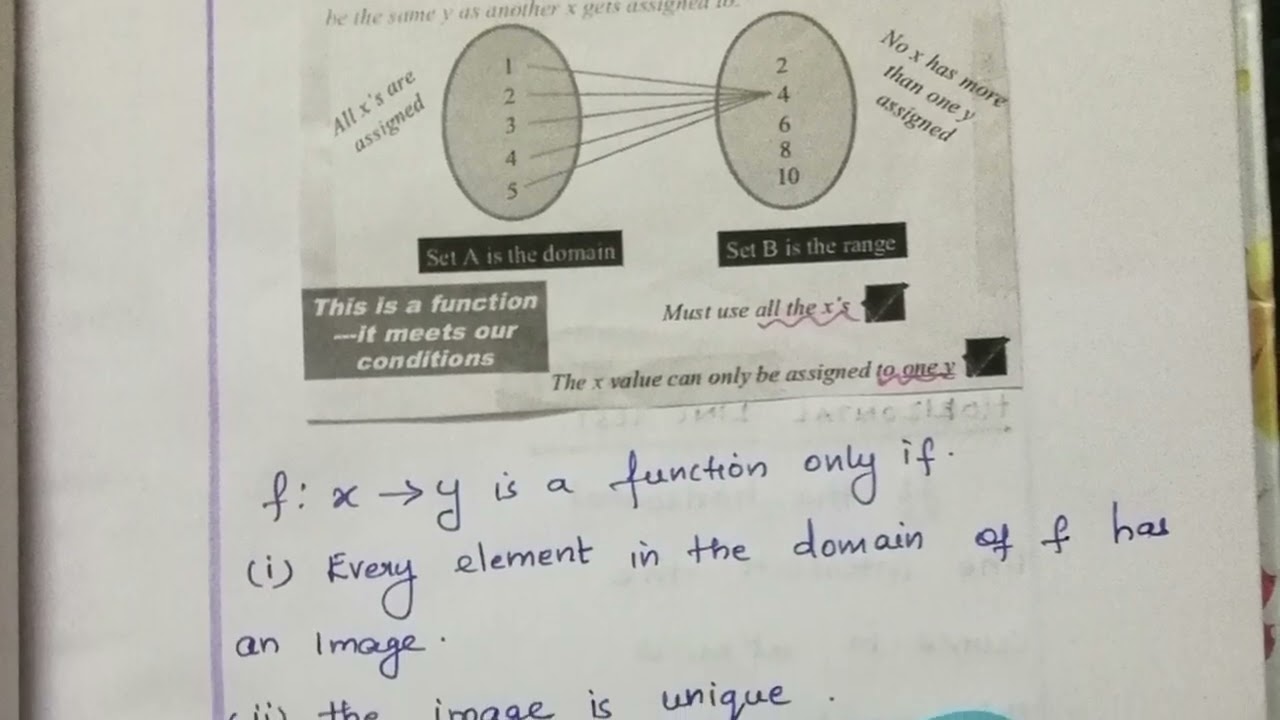 be the same y as another x gets assigned to.
All x's are
assigned
1
2
3
4
5
2
4
6
8
10
No x has more
than one y
assigned
Set A is the domain
Set B is the range
This is a function
---it meets our
conditions
Must use all the x's
The x value can only be assigned to one y
f: x → y is a function only if.
(i) Every element in the domain of f has
an Image.
(ii) the image is unique.